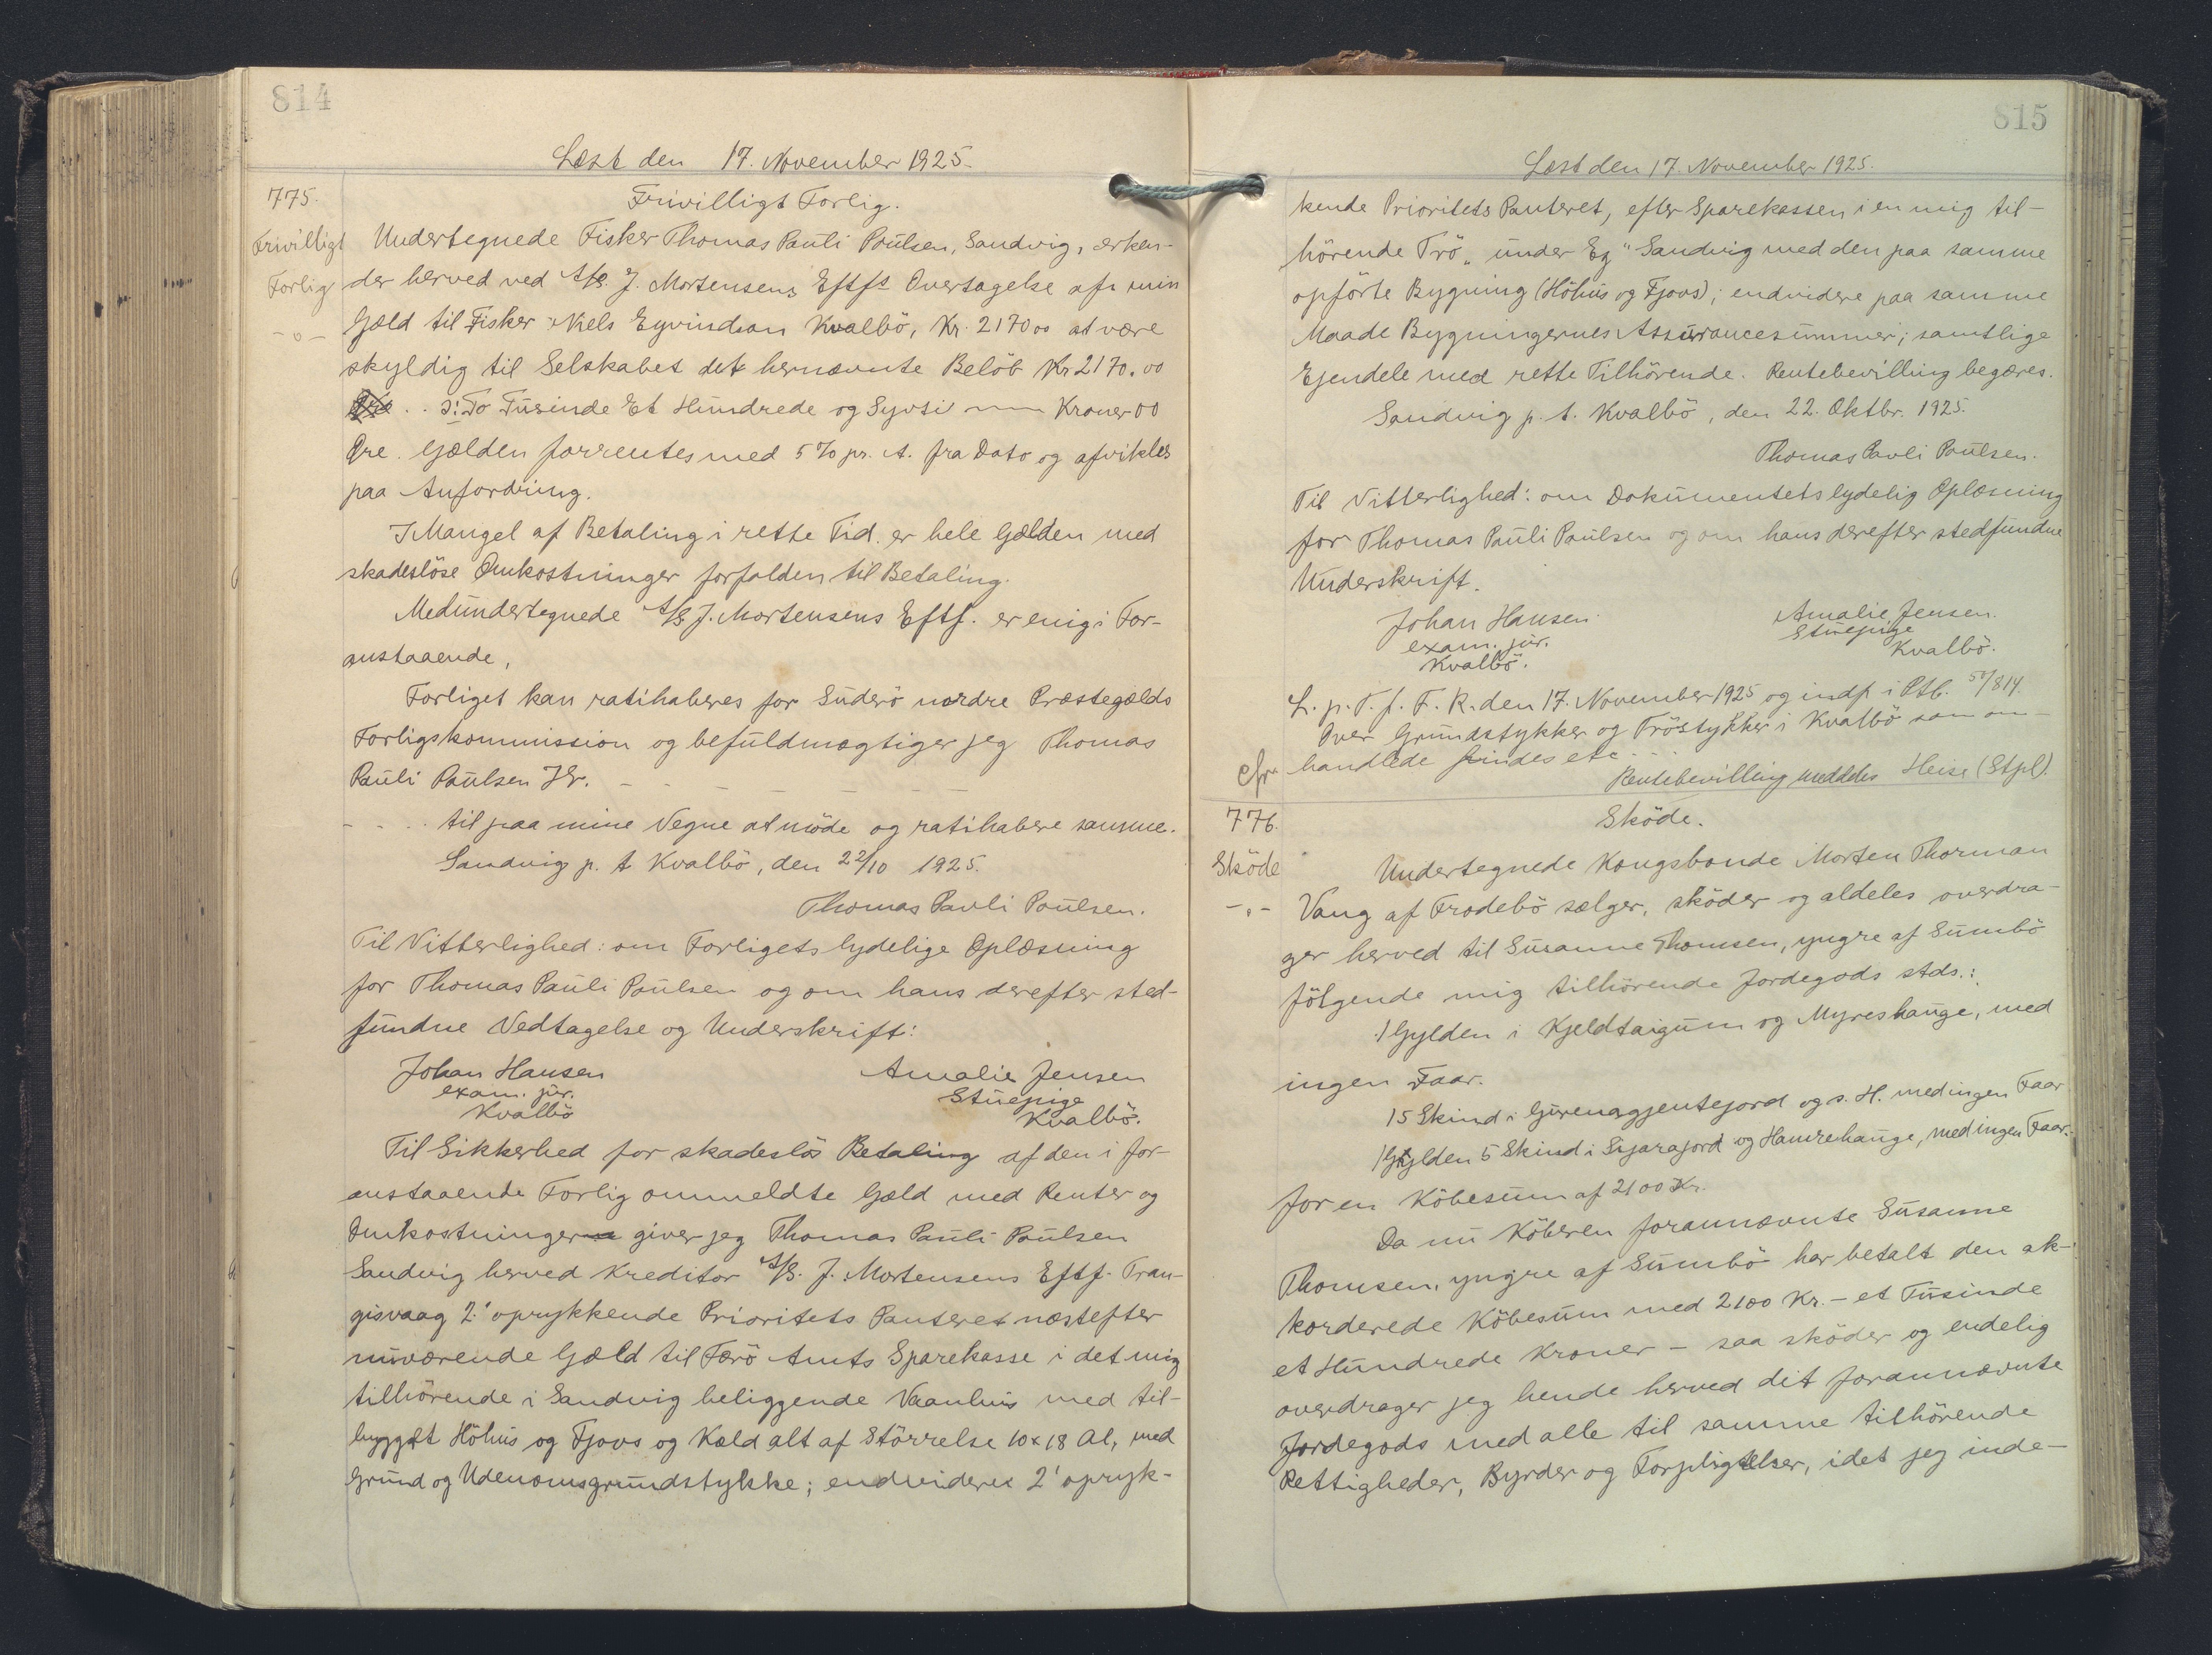 814
Læst den 17. November 1925.
775.
Frivilligt Forlig.
Frivilligt
Forlig
- o -
Undertegnede Fisker Thomas Pauli Poulsen, Sandvig, erken-
der herved ved A/S. J. Mortensens Eftfs Overtagelse af min
Gæld til Fisker Niels Eyvindson Kvalbö, Kr. 2170 00 at være
skyldig til Selskabet det hernævnte Belöb Kr 2170.00
Öre . . ɔ: To Tusinde Et Hundrede og Syvti — Kroner 00
Øre. Gælden forrentes med 5 % pr. A. fra Dato og afvikles
paa Anfordring.
I Mangel af Betaling i rette Tid er hele Gælden med
skadeslöse Omkostninger forfalden til Betaling.
Medundertegnede A/S J. Mortensens Eftf. er enig i For-
anstaaende,
Forliget kan ratihaberes for Suderö nordre Præstegælds
Forligskommission og befuldmægtiger jeg Thomas
Pauli Poulsen Hr. - - - - - -
- - - til paa mine Vegne at möde og ratihabere samme.
Sandvig p. t Kvalbö, den 22/10 1925.
Thomas Pauli Poulsen.
Til Vitterlighed: om Forligets lydelige Oplæsning
for Thomas Pauli Poulsen og om hans derefter sted-
fundne Vedtagelse og Underskrift:
Johan Hansen Amalie Jensen
exam. jur. Stuepige
Kvalbö Kvalbö.
Til Sikkerhed for skadeslös Betaling af den i for-
anstaaende Forlig ommeldte Gæld med Renter og
Omkostninger giver jeg Thomas Pauli Poulsen
Sandvig herved Kreditor A/S. J. Mortensens Eftf. Tran-
gisvaag 2.' oprykkende Prioritets Panteret næstefter
nuværende Gæld til Færö Amts Sparekasse i det mig
tilhörende i Sandvig beliggende Vaanhus med til-
bygget Höhus og Fjovs og Kæld alt af Störrelse 10 x 18 Al, med
Grund og Udenomsgrundstykke; endvidere 2' opryk-
815
Læst den 17. November 1925.
kende Prioritets Panteret, efter Sparekassen i en mig til-
hörende Trö „under Eg" Sandvig med den paa samme
opförte Bygning (Höhus og Fjovs); endvidere paa samme
Maade Bygningernes Assurancesummer; samtlige
Ejendele med rette Tilhörende. Rentebevilling begæres.
Sandvig p. t. Kvalbö, den 22. Oktbr. 1925.
Thomas Pauli Poulsen.
Til Vitterlighed: om Dokumentets lydelig Oplæsning
for Thomas Pauli Poulsen og om hans derefter stedfundne
Underskrift.
Johan Hansen Amalie Jensen.
exam. jur. Stuepige
Kvalbö. Kvalbö.
L. p. T. f. F. R. den 17. November 1925 og indf. i Ptb. 50/814.
Over Grundstykker og Tröstykker i Kvalbö som om-
cfr. handlede findes etc - - -
Rentebevilling meddeles Heise (Stpl).
776. Sköde.
Sköde
- „ -
Undertegnede Kongsbonde Morten Thorman
Vang af Frodebö sælger, sköder og aldeles overdra-
ger herved til Susanne Thomsen, yngre af Sumbö
fölgende mig tilhörende Jordegods stds.:
1 Gylden i Kjeldtaigum og Myreshauge, med
ingen Faar.
15 Skind i Gurenagjentejord og s. H. med ingen Faar
1 Gylden 5 Skind i Sijarajord og Hamrehauge, med ingen Faar.
for en Köbesum af 2100 Kr.
Da nu Köberen forannævnte Susanne
Thomsen, yngre af Sumbö har betalt den ak-
korderede Köbesum med 2100 Kr. - et Tusinde
et Hundrede Kroner - saa sköder og endelig
overdrager jeg hende herved dit forannævnte
Jordegods med alle til samme tilhörende
Rettigheder, Byrder og Forpligtelser, idet jeg inde-